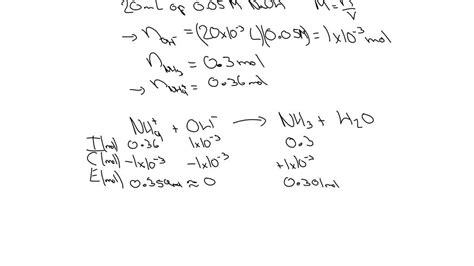 20mL of 0.05M NaOH M=n/V
→ n_OH⁻ = (20x10⁻³ L)(0.05M) = 1x10⁻³ mol
n_NH₃ = 0.3mol
→ n_NH₄⁺ = 0.36mol
NH₄⁺ + OH⁻ → NH₃ + H₂O
I(mol) 0.36 1x10⁻³ 0.3
C(mol) -1x10⁻³ -1x10⁻³ +1x10⁻³
E(mol) 0.359mol ≈ 0 0.301mol